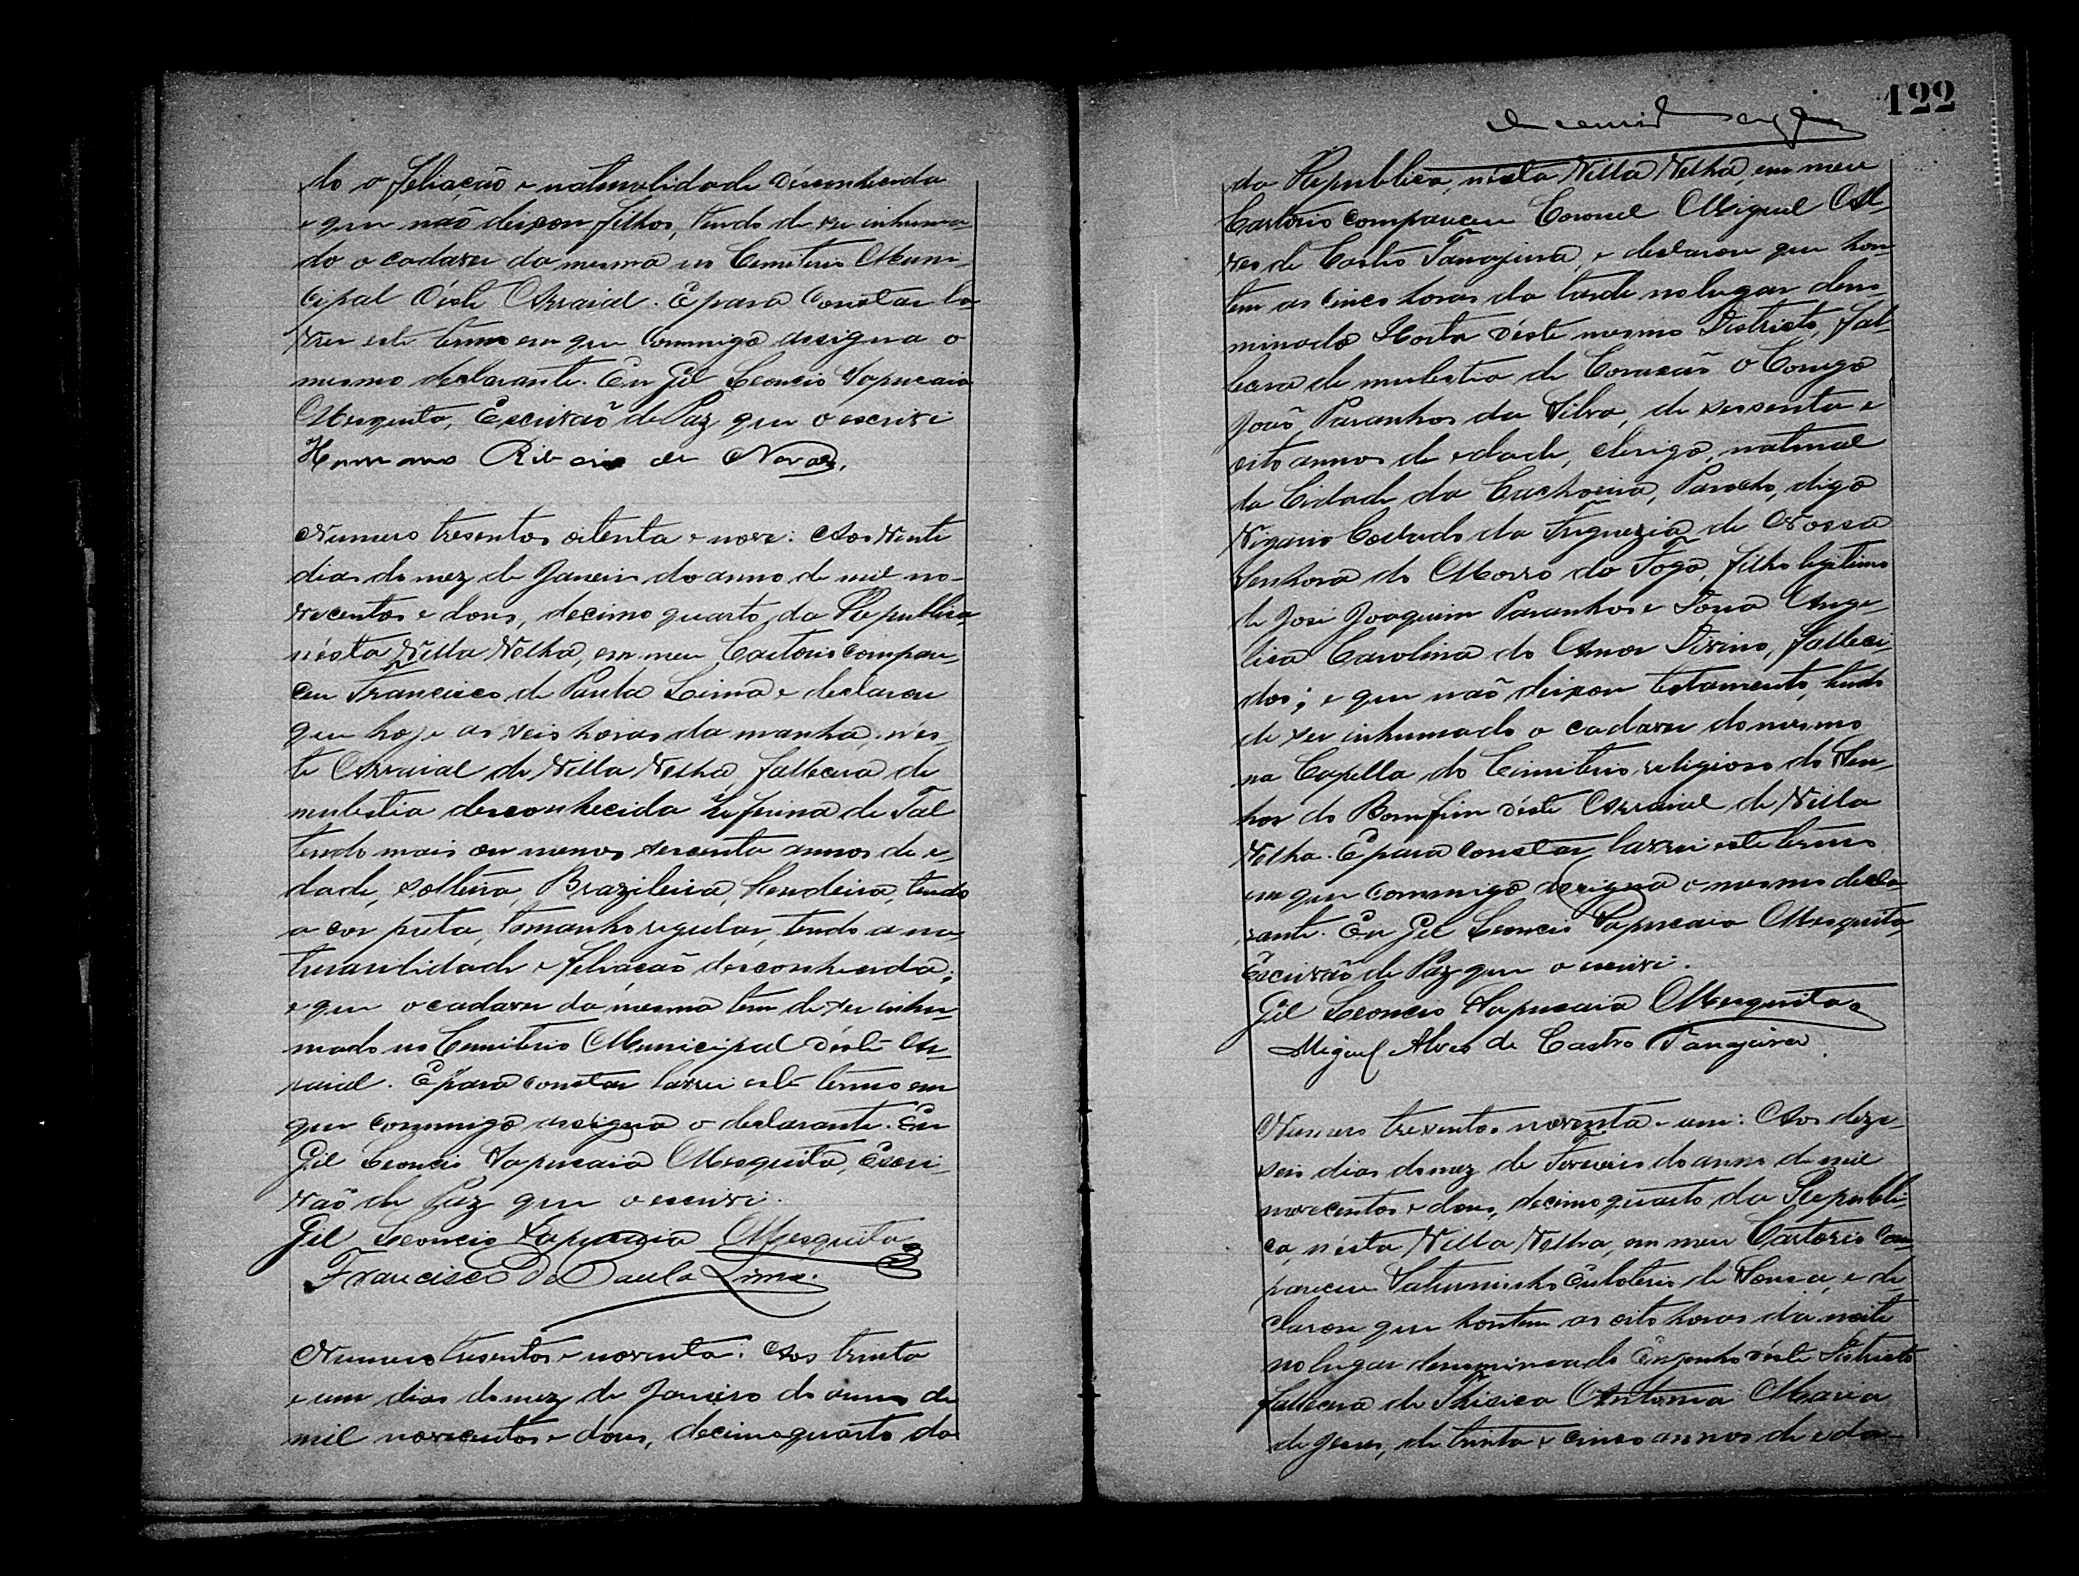 do a feliação e naturalidade désconhecida
e que não deixou filhos, tendo de ser inhuma-
do o cadaver da mesma no Cemiterio Muni-
cipal déste Arraial. E para constar la-
vrei este termo em que commigo assigna o
mesmo declarante. Eu Gil Leoncio Sapucaia
Mesquita, Escrivão de Paz que o escrivi
Ribeiro de Novaes,
Numero tresentos oitenta e nove: Aos vinte
dias do mez de Janeiro do anno de mil no-
vecentos e dous, decimo quarto da Republica
nésta Villa Velha, em meu Cartorio compare-
ceu Francisco de Paula Lima e declarou
que hoje as seis horas da manhã, nés-
te Arraial de Villa Velha fallecera de
mulestia desconhecida Zeferina de Tal
tendo mais ou menos sessenta annos de e-
dade, solteira, Brazileira, tendo
a cor preta, tamanho regular, tendo a na-
turalidade e feliação desconhecida;
e que o cadaver da mesma tem de ser inhu-
mado no Cemiterio Municipal déste Ar-
raial. E para constar lavrei este termo em
que commigo assigna o declarante. Eu
Gil Leoncio Sapucaia Mesquita, Escri-
vão de Paz que o escrivi.
Gil Leoncio Sapucaia Mesquita
Francisco de Paula Lima.
Numero tresentos e noventa: Aos trinta
e um dias do mez de Janeiro do anno de
mil novecentos e dous, decimo quarto da
122
da Republica, nésta Villa Velha, em meu
Cartorio compareceu Coronel Miguel Al-
ves de Castro Tanajura, e declarou que hon-
tem as cinco horas da tarde no lugar deno-
minado Horta déste mesmo Districto, fal-
lecera de mulestia de Coração o Conego
João Paranhos da Silva, de sessenta e
oito annos de edade, clerigo, natural
da Cidade da Cachoeira, Parocho, digo
Vigario Collado da Freguezia de Nossa
Senhora do Morro do Fogo, filho legitimo
de José Joaquim Paranhos e Dona Ange-
lica Carolina do Amor Divino, falleci-
dos; e que não deixou testamento, tendo
de ser inhumado o cadaver do mesmo
na Capella do Cimiterio religioso do Sen-
hor do Bomfim déste Arraial de Villa
Velha. E para constar lavrei este termo
em que commigo assigna o mesmo decla-
rante. Eu Gil Leoncio Sapucaia Mesquita,
Escrivão de Paz que o escrivi.
Gil Leoncio Sapucaia Mesquita
Miguel Alves de Castro Tanajura.
Numero tresentos noventa e um: Aos deze-
seis dias do mez de Fevereiro do anno de mil
novecentos e dous, decimo quarto da Republi-
ca, nésta Villa Velha, em meu Cartorio com-
pareceu Saturninho de Souza, e de-
clarou que hontem as oito horas da noite
no lugar denominado Engenho déste Districto
fallecera de Thisica Antonia Maria
de Jesus, de trinta e cinco annos de eda-